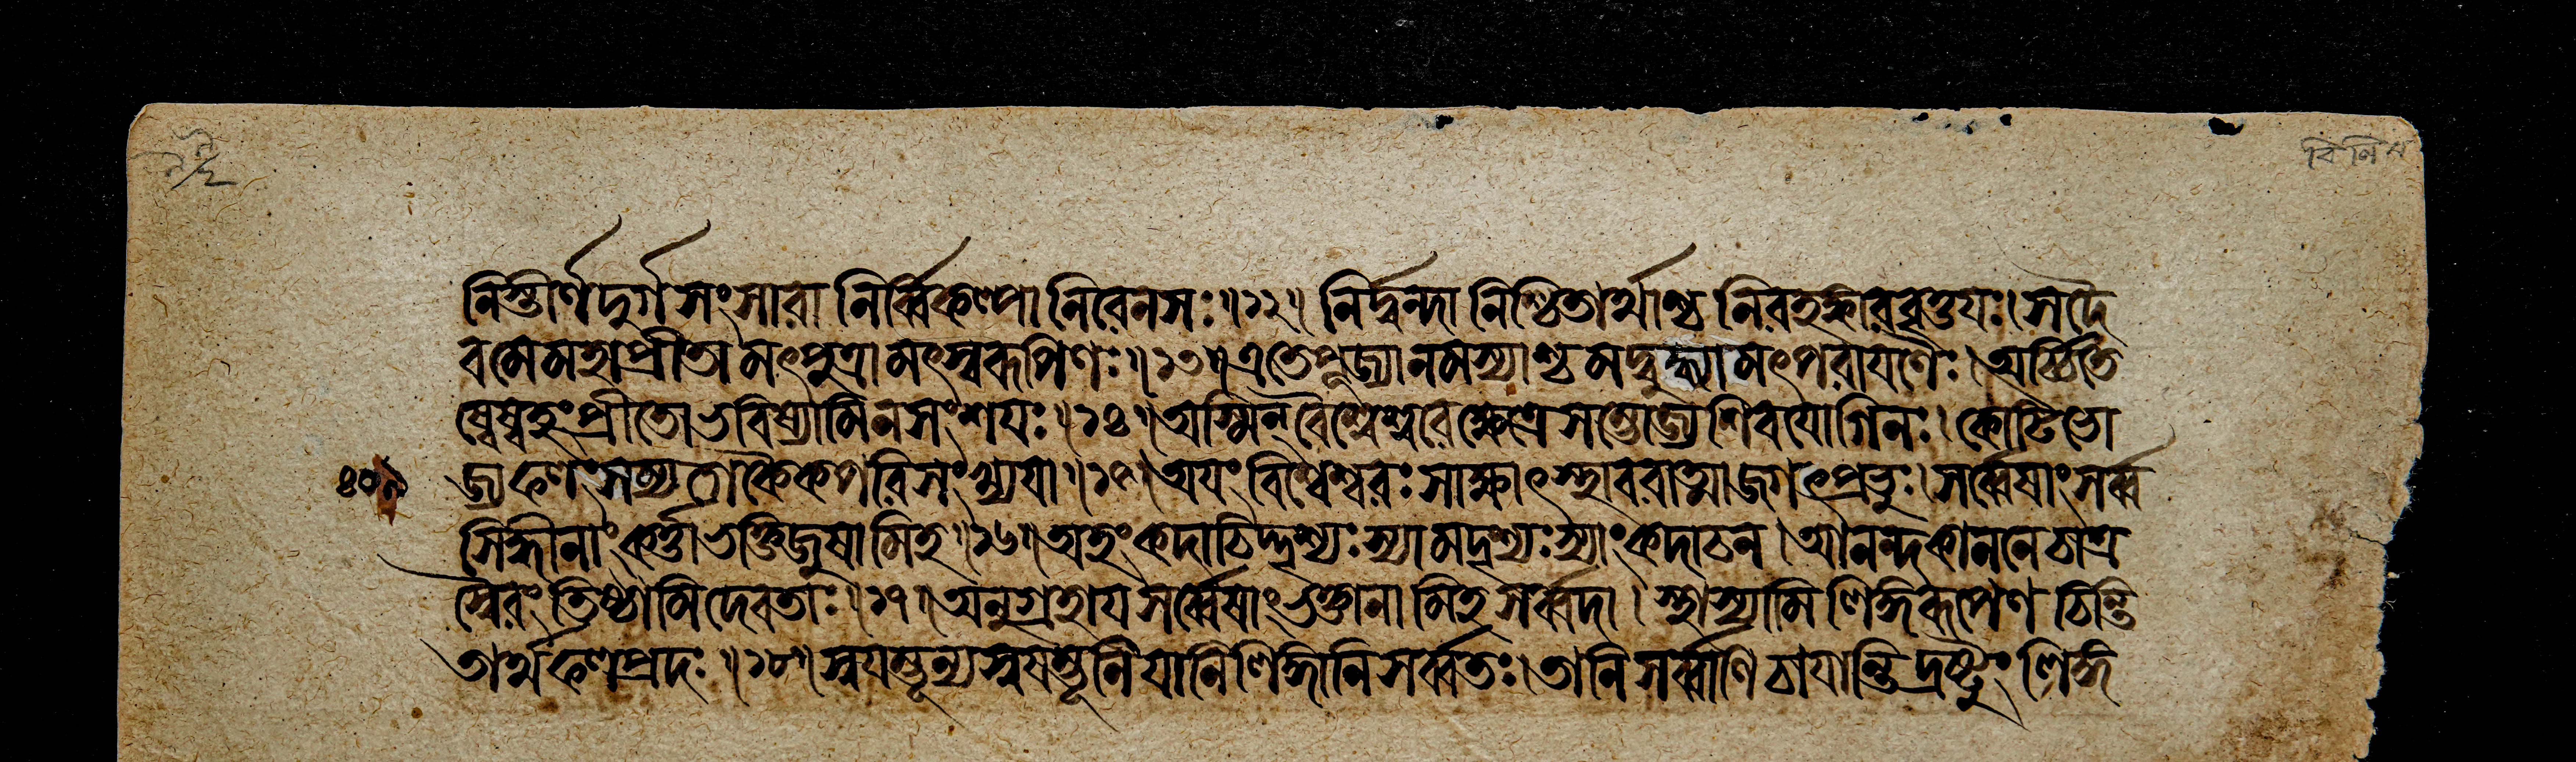 নিস্তীর্ণদুর্গসংসারা নির্ব্বিকল্পা নিরেনসঃ॥১২॥ নির্দ্বন্দ্বা নিশ্চিতার্থাশ্চ নিরহঙ্কারবৃত্তয়ঃ।সদৈ
বমেমহাপ্রীতা মৎপুত্রা মৎস্বরূপিণঃ॥১৩॥এতেপূজ্যানমস্যাশ্চ মদ্বুদ্ধ্যামৎপরায়ণৈঃ।অর্চ্চিতৈ
ষ্বেষ্বহং প্রীতোভবিষ্যামিনসংশয়ঃ॥১৪॥অস্মিন্বৈশ্বেশ্বরেক্ষেত্রেসম্ভোজ্যাশিবযোগিনঃ।কোটিভো
৪০৯ জ্যফলংসম্যগেকৈকপরিসংখ্যয়া॥১৫॥অয়ং বিশ্বেশ্বরঃসাক্ষাৎস্থাবরাত্মাজগৎপ্রভুঃ।সর্ব্বেষাংসর্ব্ব
সিদ্ধীনাংকর্ত্তাভক্তিজুষামিহ॥১৬॥অহংকদাচিদ্দৃশ্যঃস্যামদৃশ্যঃস্যাংকদাচন।আনন্দকাননেচাত্র
স্বৈরং তিষ্ঠামিদেবতাঃ॥১৭॥অনুগ্রহায়সর্ব্বেষাংভক্তানামিহসর্ব্বদা।স্থাস্যামি লিঙ্গরূপেণ চিন্তি
তার্থফলপ্রদঃ॥১৮॥স্বয়ম্ভূন্যস্বয়ম্ভূনিযানিলিঙ্গানিসর্ব্বতঃ।তানিসর্ব্বাণিচায়ান্তিদ্রষ্টুং লিঙ্গ